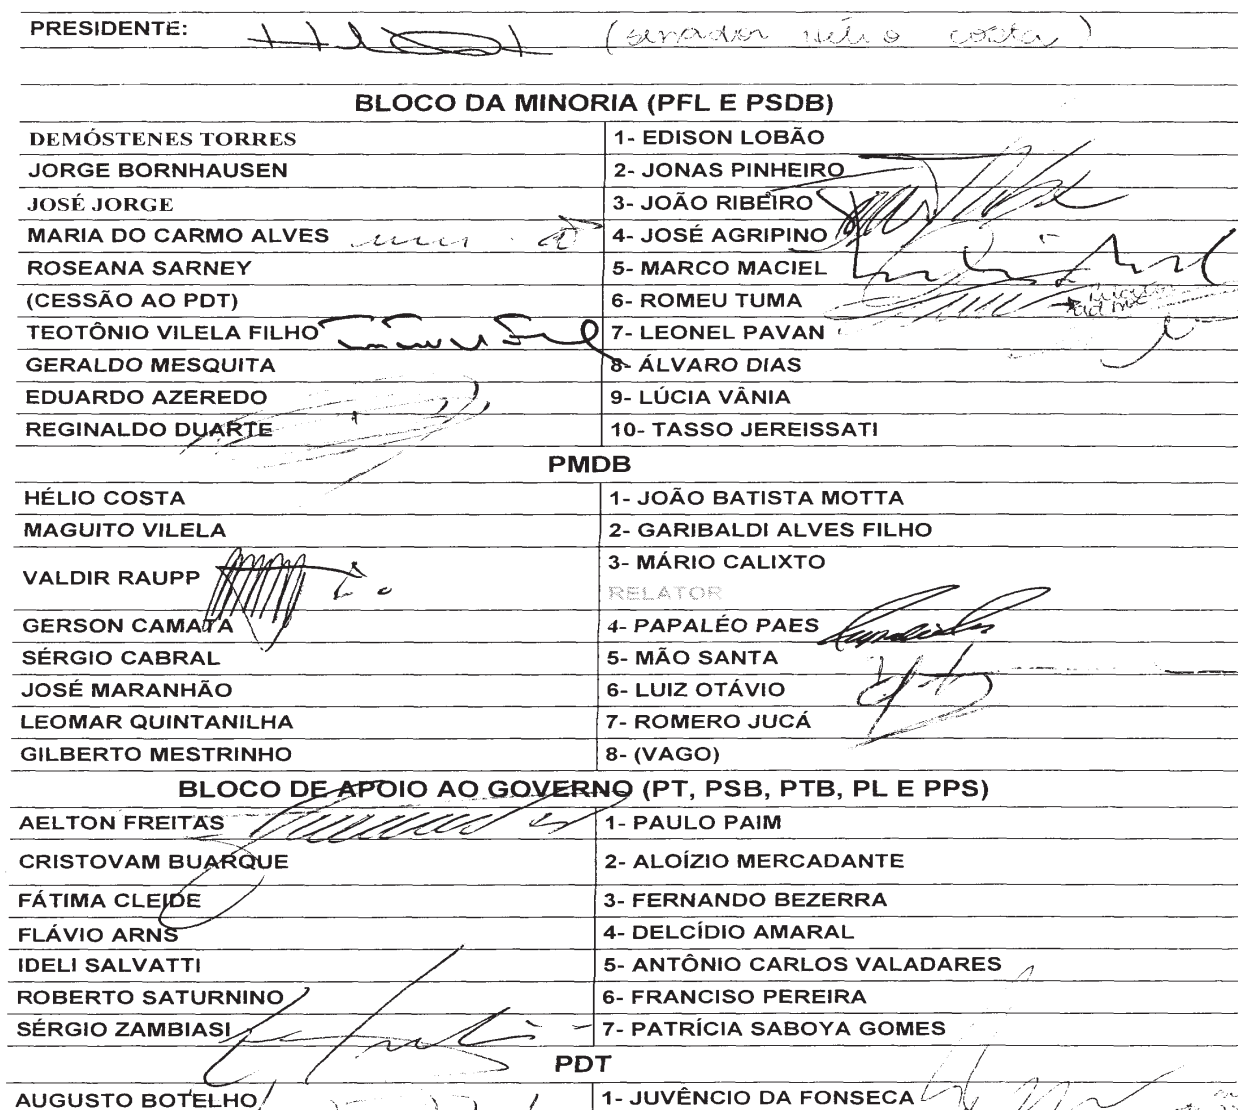 PRESIDENTE: (senador Hélio Costa)
BLOCO DA MINORIA (PFL E PSDB)
DEMÓSTENES TORRES 1- EDISON LOBÃO
JORGE BORNHAUSEN 2- JONAS PINHEIRO
JOSÉ JORGE 3- JOÃO RIBEIRO
MARIA DO CARMO ALVES 4- JOSÉ AGRIPINO
ROSEANA SARNEY 5- MARCO MACIEL
(CESSÃO AO PDT) 6- ROMEU TUMA
TEOTÔNIO VILELA FILHO 7- LEONEL PAVAN
GERALDO MESQUITA 8- ÁLVARO DIAS
EDUARDO AZEREDO 9- LÚCIA VÂNIA
REGINALDO DUARTE 10- TASSO JEREISSATI
PMDB
HÉLIO COSTA 1- JOÃO BATISTA MOTTA
MAGUITO VILELA 2- GARIBALDI ALVES FILHO
VALDIR RAUPP 3- MÁRIO CALIXTO
RELATOR
GERSON CAMATA 4- PAPALÉO PAES
SÉRGIO CABRAL 5- MÃO SANTA
JOSÉ MARANHÃO 6- LUIZ OTÁVIO
LEOMAR QUINTANILHA 7- ROMERO JUCÁ
GILBERTO MESTRINHO 8- (VAGO)
BLOCO DE APOIO AO GOVERNO (PT, PSB, PTB, PL E PPS)
AELTON FREITAS 1- PAULO PAIM
CRISTOVAM BUARQUE 2- ALOÍZIO MERCADANTE
FÁTIMA CLEIDE 3- FERNANDO BEZERRA
FLÁVIO ARNS 4- DELCÍDIO AMARAL
IDELI SALVATTI 5- ANTÔNIO CARLOS VALADARES
ROBERTO SATURNINO 6- FRANCISO PEREIRA
SÉRGIO ZAMBIASI 7- PATRÍCIA SABOYA GOMES
PDT
AUGUSTO BOTELHO 1- JUVÊNCIO DA FONSECA